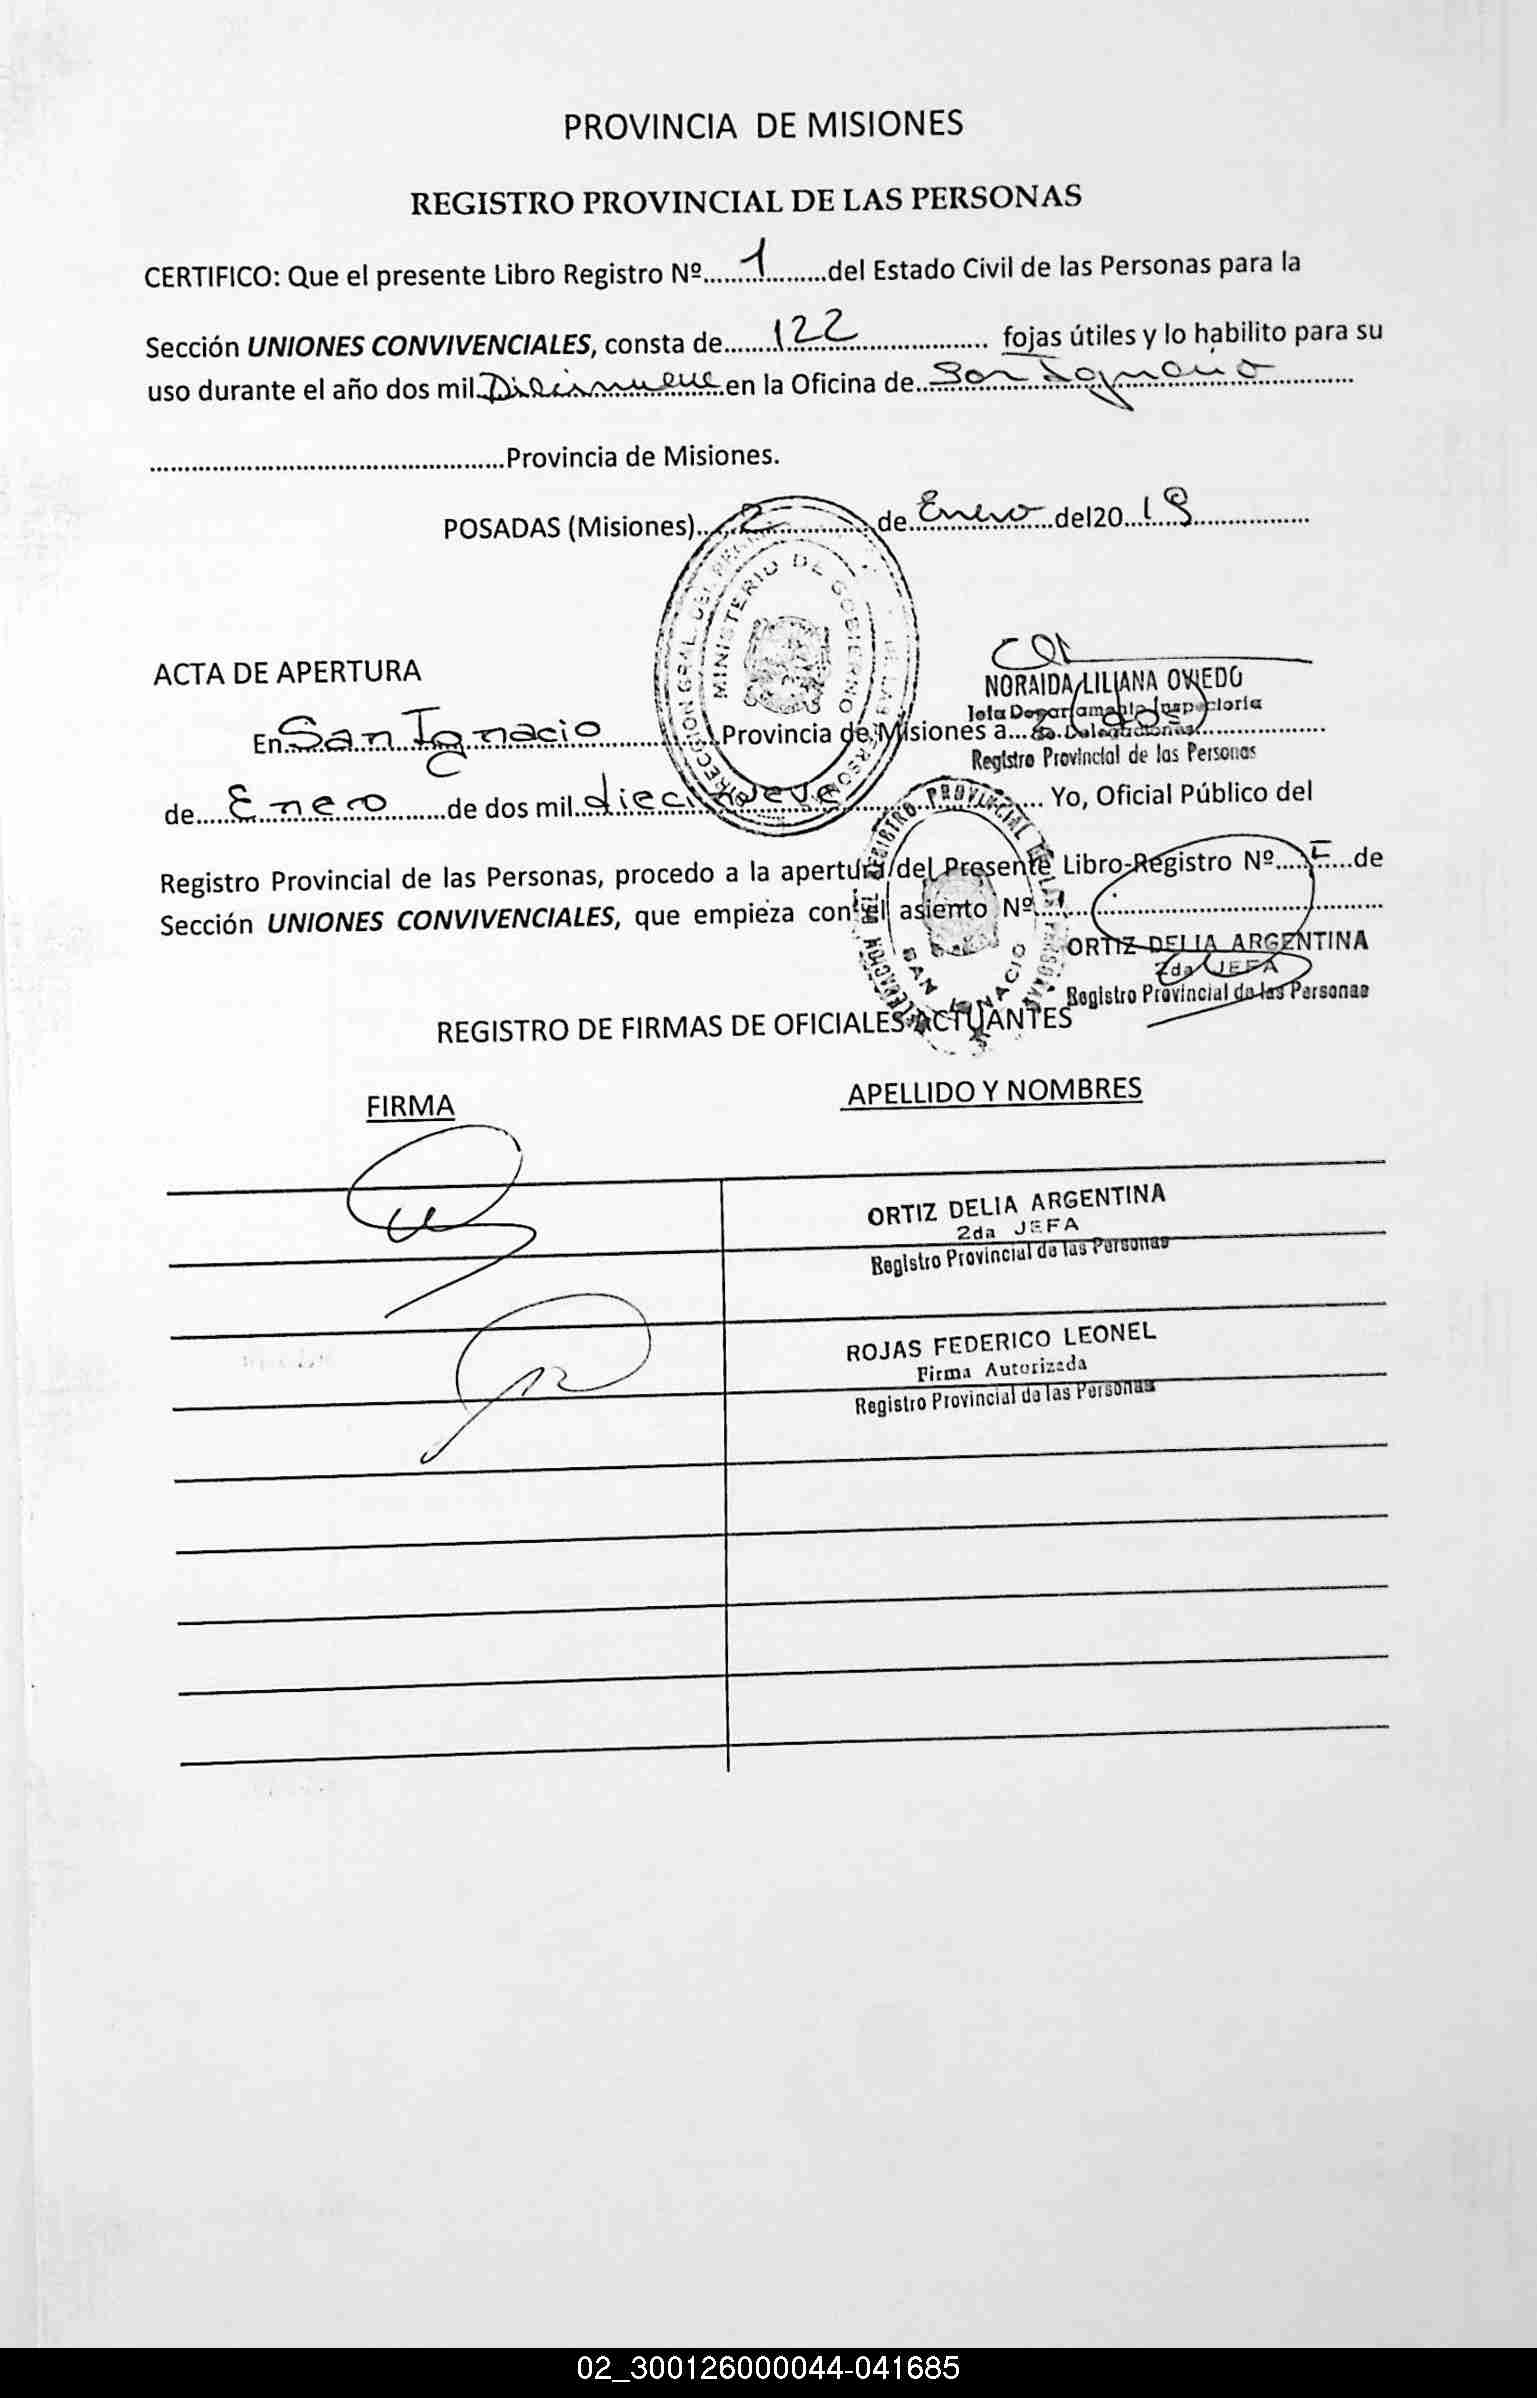 PROVINCIA DE MISIONES
REGISTRO PROVINCIAL DE LAS PERSONAS
CERTIFICO: Que el presente Libro Registro Nº.....1.....del Estado Civil de las Personas para la
Sección UNIONES CONVIVENCIALES, consta de.....122..... fojas útiles y lo habilito para su
uso durante el año dos mil Diecinueve en la Oficina de San Ignacio
.....Provincia de Misiones.
POSADAS (Misiones)...2...de Enero del 2019
MINISTERIO DE GOBIERNO
ACTA DE APERTURA
NORAIDA LILIANA OVIEDO
Registro Provincial de las Personas
En San Ignacio Provincia de Misiones a... dos
de Enero de dos mil diecinueve Yo, Oficial Público del
Registro Provincial de las Personas, procedo a la apertura del Presente Libro-Registro Nº...I...de
Sección UNIONES CONVIVENCIALES, que empieza con el asiento Nº...1...
SAN IGNACIO
ORTIZ DELIA ARGENTINA
2da JEFA
Registro Provincial de las Personas
REGISTRO DE FIRMAS DE OFICIALES ACTUANTES
FIRMA APELLIDO Y NOMBRES
ORTIZ DELIA ARGENTINA
2da JEFA
Registro Provincial de las Personas
ROJAS FEDERICO LEONEL
Firma Autorizada
Registro Provincial de las Personas
02_300126000044-041685